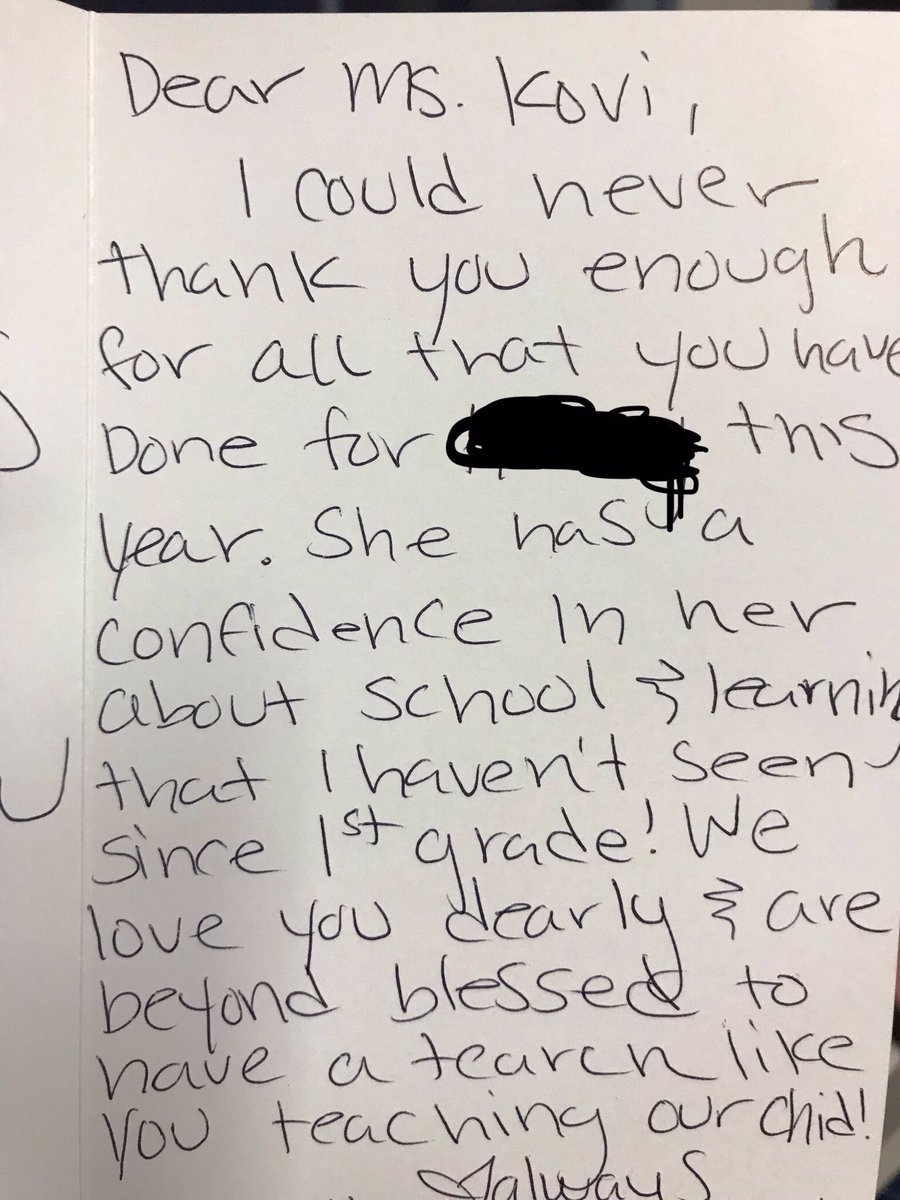 Dear Ms. Kovi,
I could never
thank you enough
for all that you have
Done for this
year. She has a
confidence in her
about school & learnin
that I haven't seen
since 1st grade! We
love you dearly & are
beyond blessed to
have a tearch like
you teaching our chid!
♡always